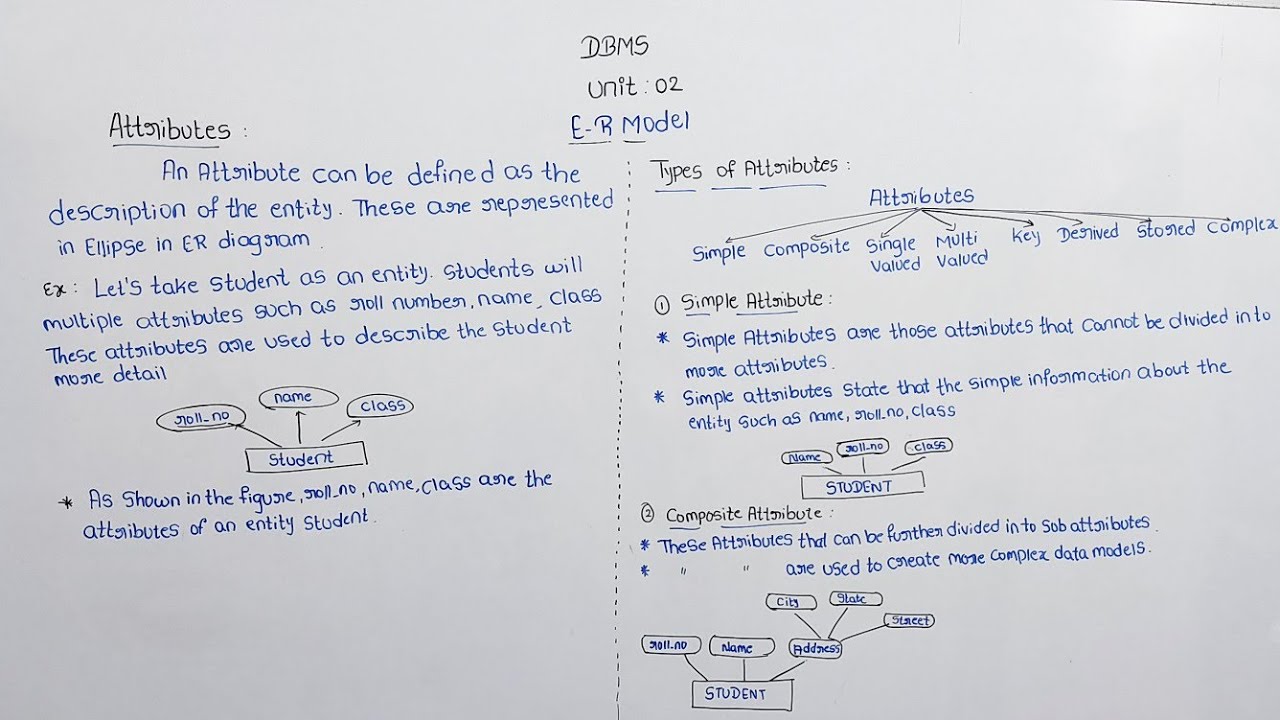 DBMS
Unit : 02
E-R Model
Attributes :
An Attribute can be defined as the
description of the entity. These are represented
in Ellipse in ER diagram.
Ex : Let's take Student as an entity. Students will
multiple attributes such as roll number, name, class
These attributes are used to describe the Student
more detail
roll_no
name
class
Student
* As Shown in the figure, roll_no, name, class are the
attributes of an entity Student.
Types of Attributes :
Attributes
Simple Composite Single Valued Multi Valued Key Derived Stored Complex
① Simple Attribute :
* Simple Attributes are those attributes that cannot be divided in to
more attributes.
* Simple attributes State that the simple information about the
entity such as name, roll_no, class
Name
roll_no
class
STUDENT
② Composite Attribute :
* These Attributes that can be further divided in to Sub attributes.
* " " are used to create more complex data models.
City
State
Street
roll_no
Name
Address
STUDENT